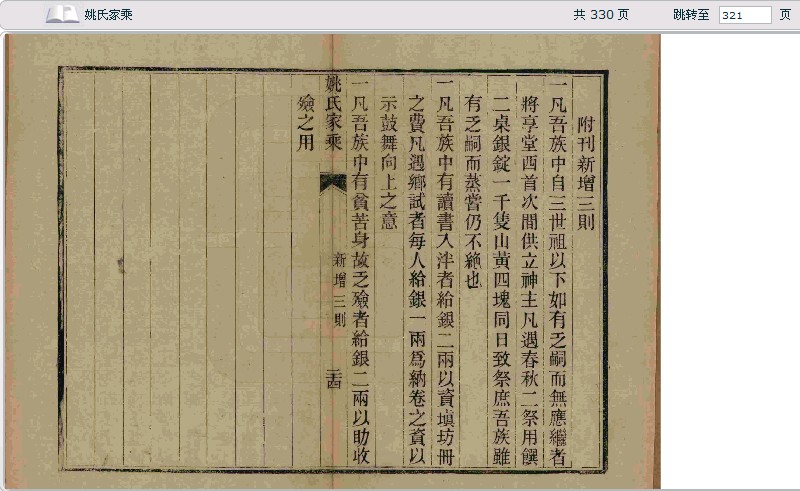 姚氏家乘
共 330 页
跳转至 321 页
附刊新增三則
一凡吾族中自三世祖以下如有乏嗣而無應繼者
將享堂西首次間供立神主凡遇春秋二祭用饌
二桌銀錠一千隻山黃四塊同日致祭庶吾族雖
有乏嗣而蒸嘗仍不絶也
一凡吾族中有讀書入泮者給銀二兩以資塡坊冊
之費凡遇鄉試者每人給銀一兩爲納卷之資以
示鼓舞向上之意
一凡吾族中有貧苦身故乏殮者給銀二兩以助收
姚氏家乘 新增三則 三十四
殮之用